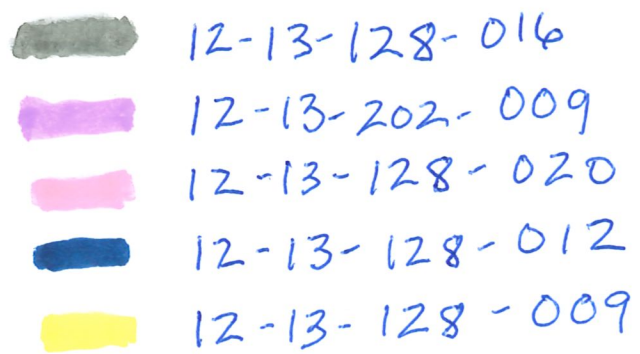 12-13-128-016
12-13-202-009
12-13-128-020
12-13-128-012
12-13-128-009